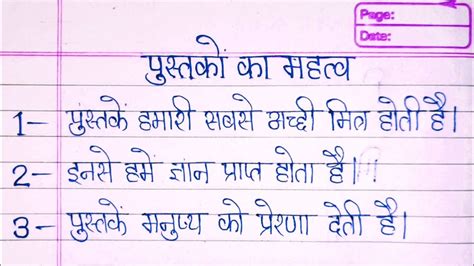 Page:
Date:
पुस्तकों का महत्व
1– पुस्तकें हमारी सबसे अच्छी मित्र होती है।
2– इनसे हमें ज्ञान प्राप्त होता है।
3– पुस्तकें मनुष्य को प्रेरणा देती है।